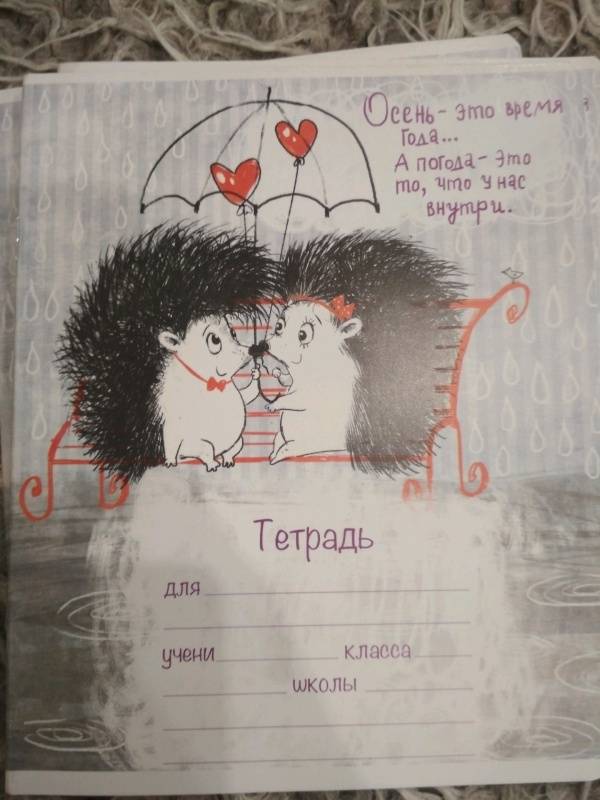 Осень - это время
года...
А погода - это
то, что у нас
внутри.
Тетрадь
для
учени класса
школы